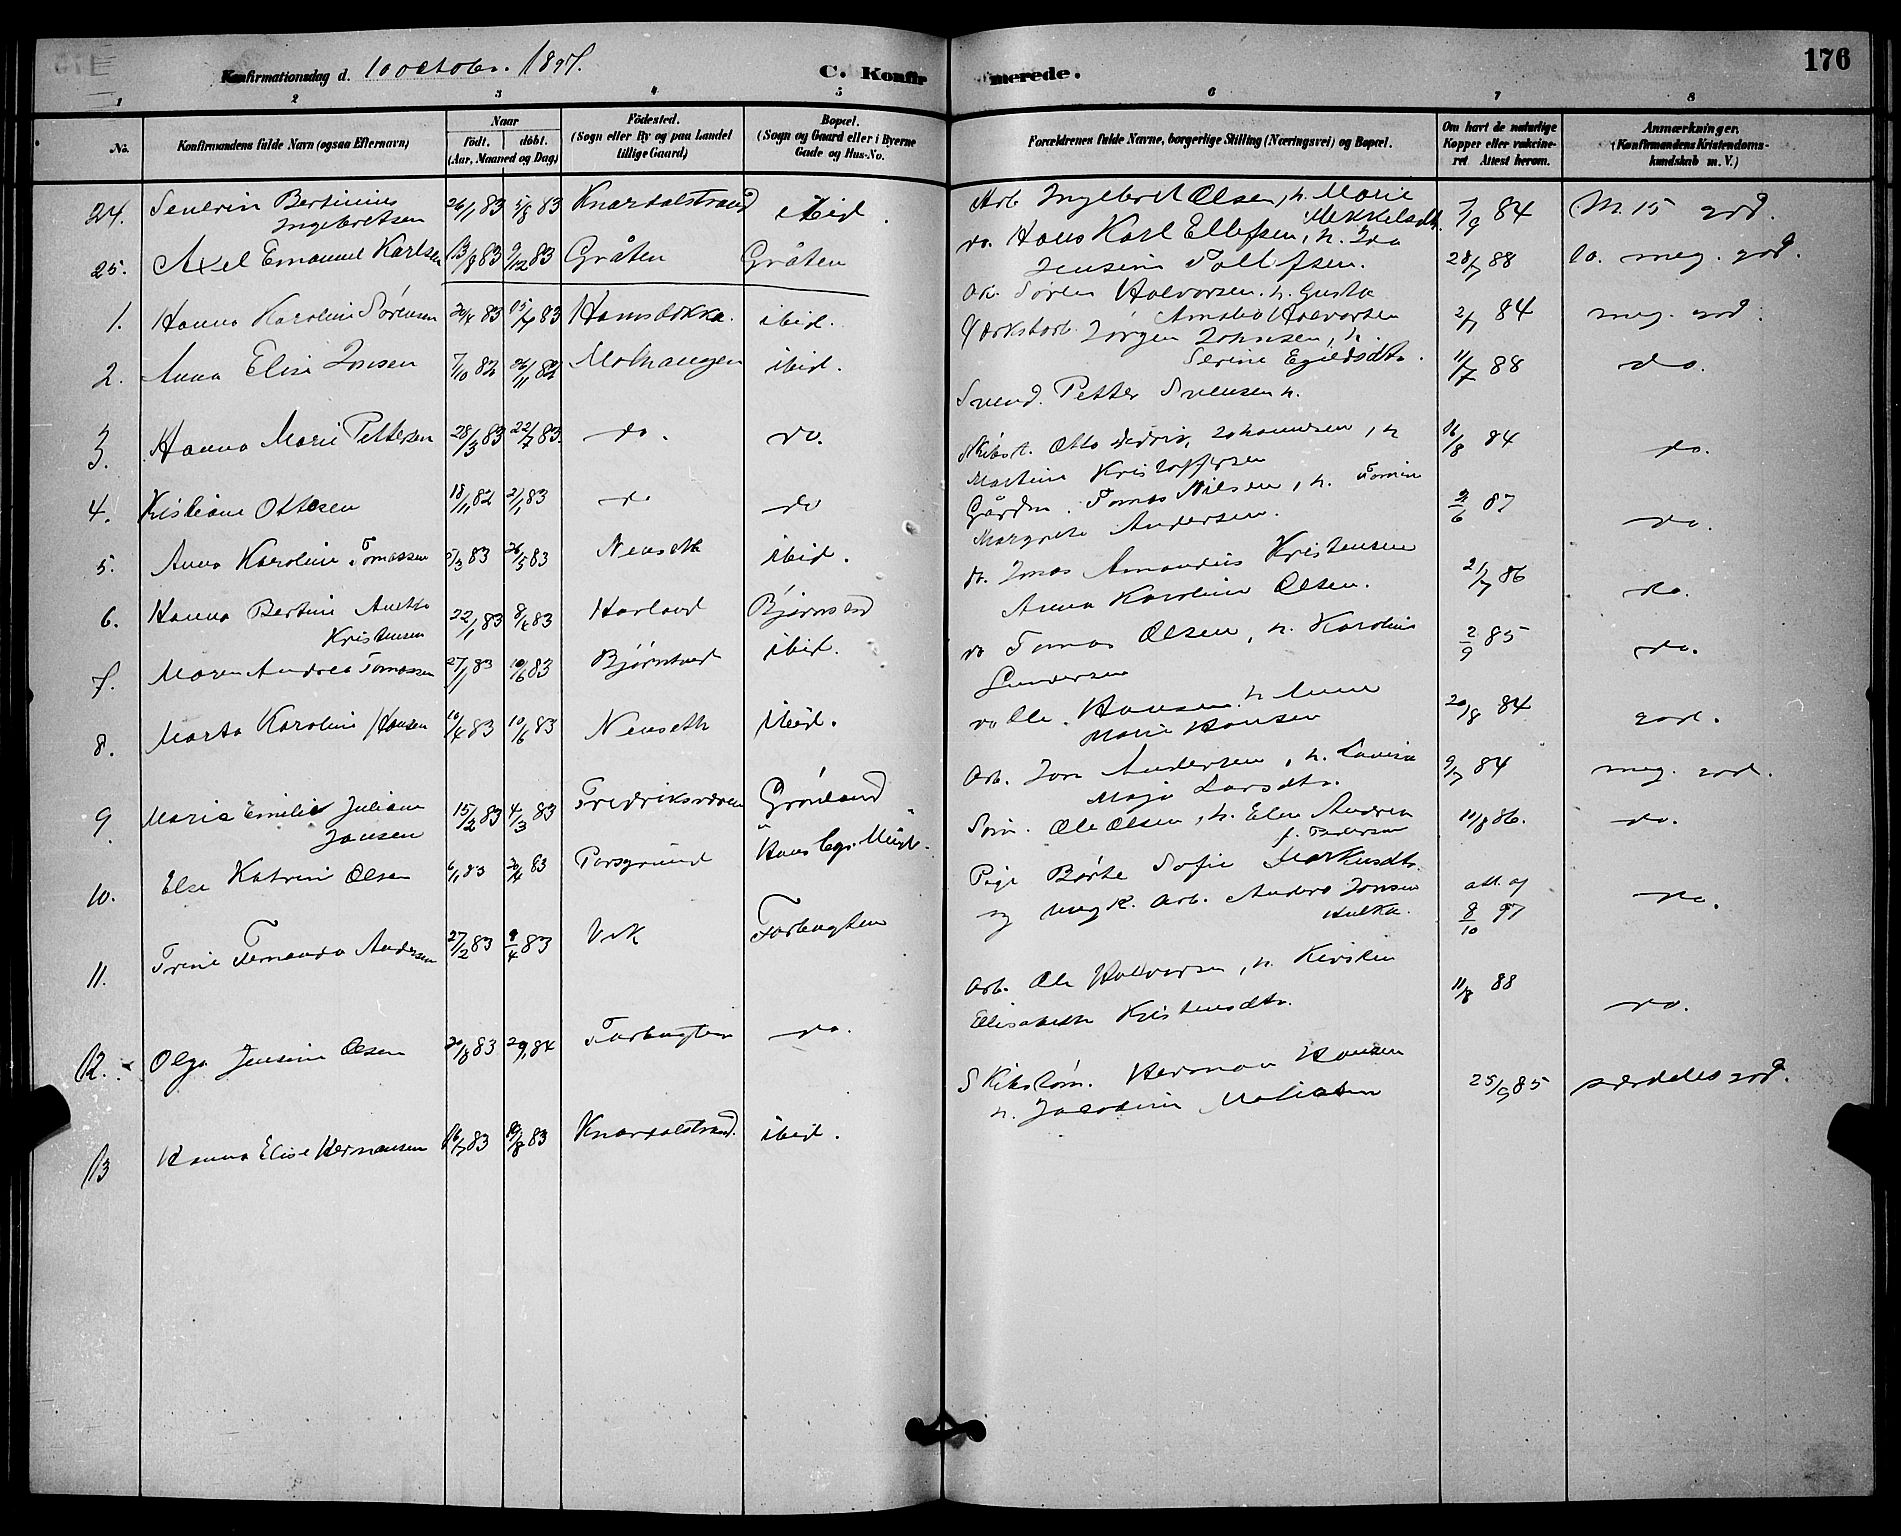 176
Konfirmationsdag d. 10 october 1897.
C. Konfirmerede.
1 2 3 4 5 6 7 8
No.
Konfirmandens fulde Navn (ogsaa Efternavn)
Naar
födt. döbt.
(Aar, Maaned og Dag)
Födested.
(Sogn eller By og paa Landet
tillige Gaard)
Bopæl.
(Sogn og Gaard eller i Byerne
Gade og Hus-No.
Forældrenes fulde Navne, borgerlige Stilling (Næringsvei) og Bopæl.
Om havt de naturlige
Kopper eller vakcine-
ret Attest herom.
Anmærkninger.
(Konfirmandens Kristendoms-
kundskab m. V.)
24. Severin Bertinius 26/1 83 5/8 83 Knardalstrand ibid. Arb. Ingebret Olsen, h. Marie 7/9 84 M. 15 god.
Ingebretsen Mikkelsdt.
25. Axel Emanuel Karlsen 13/8 83 9/12 83 Gråten Gråten do. Hans Karl Ellefsen, h. Ida 28/7 88 do. meg. god.
Jensine Tollefsen.
1. Hanna Karoline Sörensen 20/4 83 15/7 83 ibid. Arb. Sören Halvorsen. h. Gusta 2/7 84 meg. god.
Amalie Halvorsen
2. Anna Elise Jonsen 7/10 82 26/11 82 ibid. Jörgen Johnsen, h. 11/7 88 do.
Serine
3. Hanna Marie Pettersen 28/3 83 22/7 83. do. do. Svend. Petter Svensen h. 16/8 84 do.
4. Kristiane Ottesen 18/11 82 2/1 83 do do Otto Johannesen, h 2/6 87 do.
Martine Kristoffersen
5. Anna Karoline Tomassen 5/3 83 26/5 83 Nenseth ibid. Gårdm. Tomas Nilsen, h. 2/7 86 do.
Margrete Andersen.
6. Hanna Bertine Anette 22/1 83 8/4 83 Horland do. Jonas Amandus Kristensen 2/9 85 do.
Kristensen Anna Karoline Olsen.
7. Maren Andrea Tomassen 27/1 83 10/6 83 Björntved ibid. do Tomas Olsen, h. Karoline 20/8 84 god.
Gundersen
8. Marta Karoline Hansen 10/4 83 10/6 83 Nenseth ibid. do Ole Hansen h Anne 9/7 84 meg. god.
Marie Hansen
9. Marie Emilie Juliane 15/2 83 4/3 83 Fredriksværn Grönland Arb. Jon Andersen, h. Lovisa 11/8 86. do.
Jansen Maja Larsdtr.
10. Else Katrine Olsen 6/1 83 30/4 83 Porsgrund Söm. Ole Olsen, h. Elen Andrea
f. Pedersen
11. Trine Fernanda Andersen 27/2 83 9/4 83 Vik Forbugten Pige Börte Sofie Markusdtr. att. af do.
og ungk. Arb. Anders Jonsen 8/10 97
12. Olga Jensine Olsen 20/8 83 84 Forbugten do. Arb. Ole Halvorsen, h. Kirsten 11/8 88 do.
Elisabeth Kristensdtr.
13 Hanna Elise Hermansen 16/7 83 83 Knardalstrand. ibid. Skibstöm. Herman Hansen 25/9 85 særdeles god.
h.